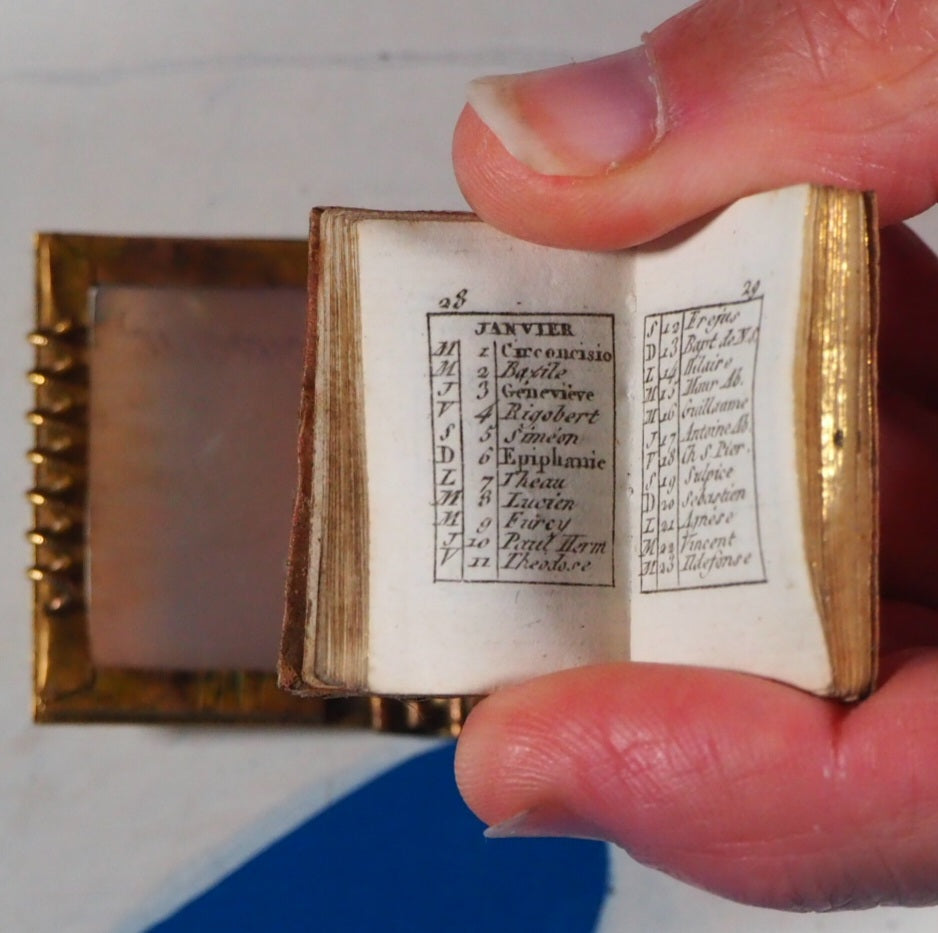 28
JANVIER
M 1 Circoncisio
M 2 Bazile
J 3 Géneviève
V 4 Rigobert
S 5 Siméon
D 6 Epiphanie
L 7 Theau
M 8 Lucien
M 9 Furcy
J 10 Paul Herm
V 11 Theodose
29
S 12 Frejus
D 13 Bapt de N.S.
L 14 Hilaire
M 15 Maur Ab.
M 16 Guillaume
J 17 Antoine Ab.
V 18 Ch S. Pier.
S 19 Sulpice
D 20 Sebastien
L 21 Agnèse
M 22 Vincent
M 23 Ildefonse